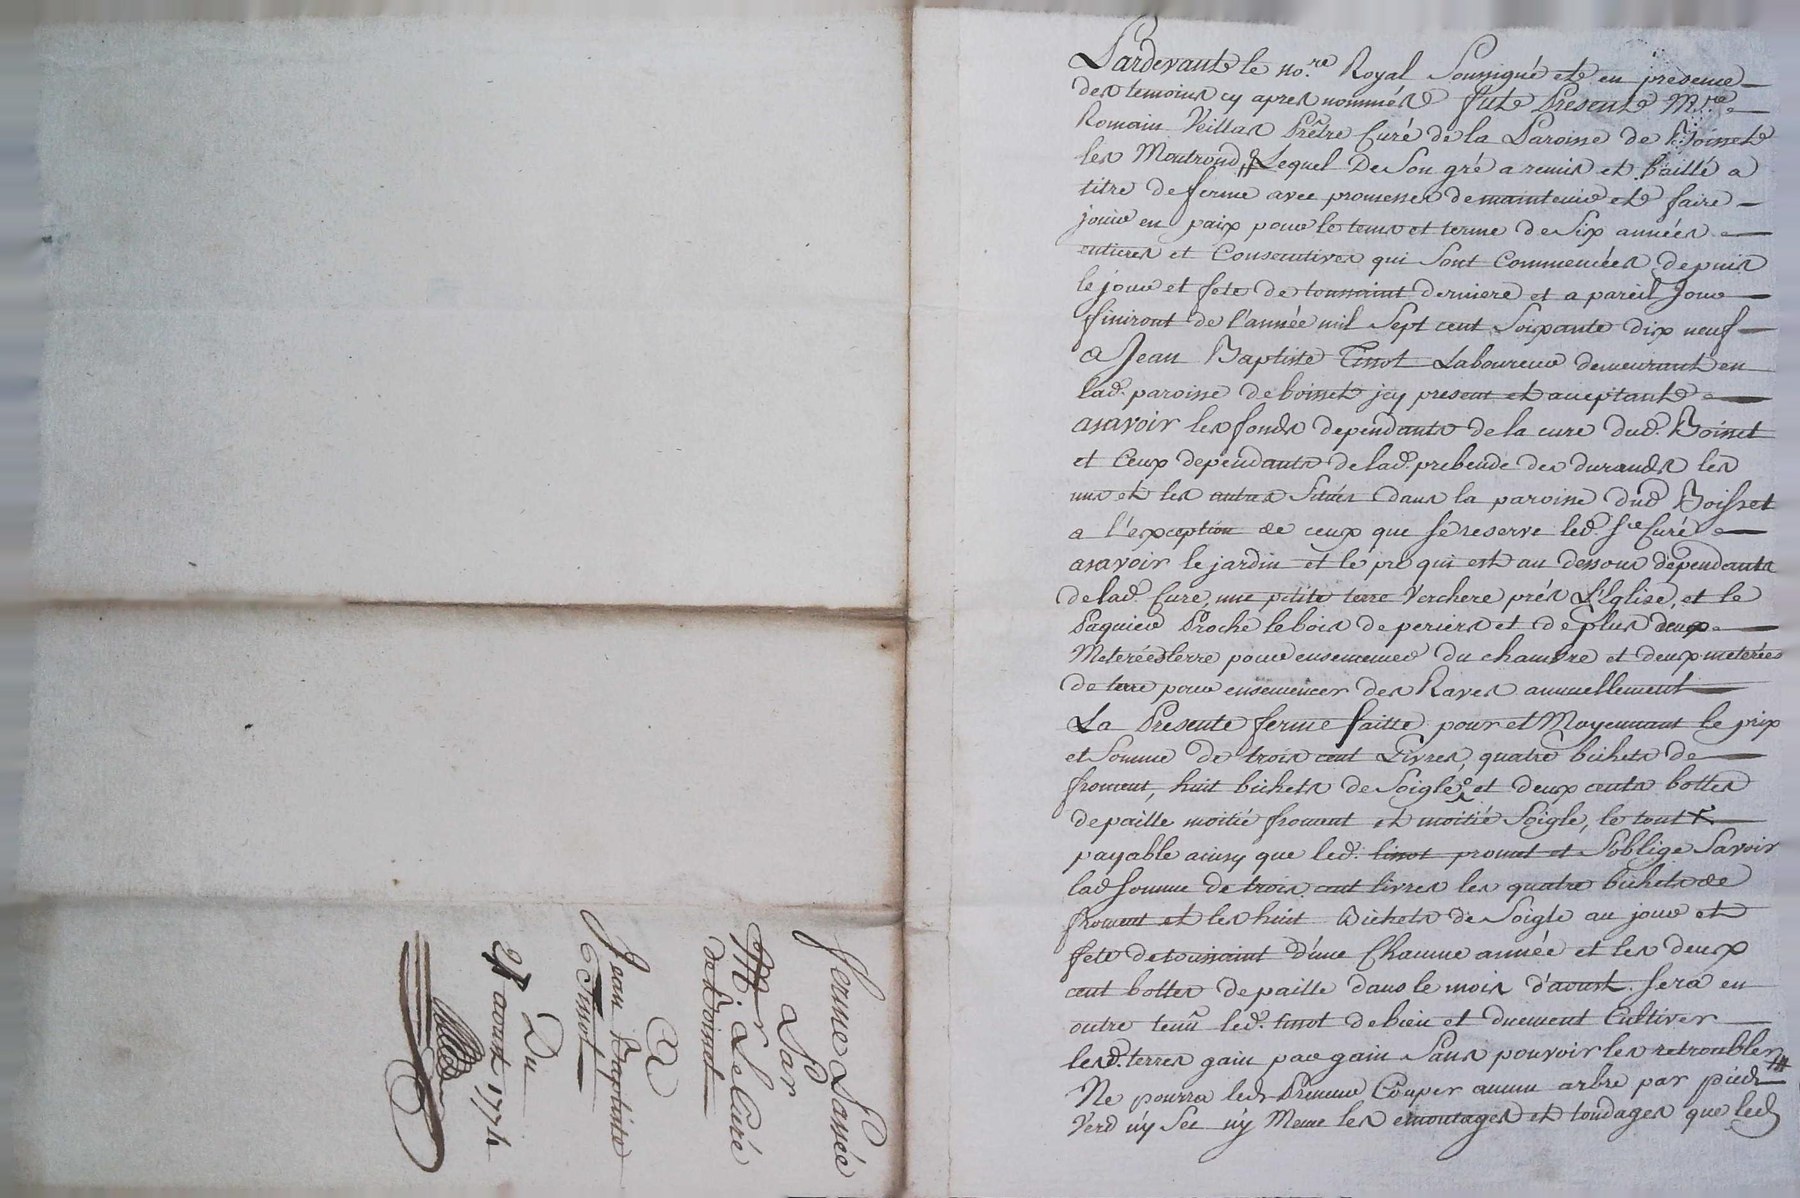 Pardevant le no.re Royal Soussigné et en presence
des temoins cy apres nommés fut Present Mre
Romain Veillas Prêtre Curé de la Paroisse de Boisset
les Montrond, Lequel De Son gré a remis et baillé a
titre de ferme avec promesses de maintenir et faire
jouir en paix pour le tems et terme de Six années
entieres et Consecutives qui Sont Commencées depuis
le jour et fete de toussaint derniere et a pareil Jour
finiront de l'année mil Sept cent Soixante dix neuf
a Jean Baptiste Tissot Laboureur demeurant en
lad. paroisse de boisset icy present et acceptant
asavoir les fonds dependants de la cure dud. Boisset
et Ceux dependants de lad. prebende des durands les
uns et les autres Situés dans la paroisse dud Boisset
a l'exception de ceux que se reserve led. Sr Curé
asavoir le jardin et le pré qui est au dessous dependants
de lad. Cure, une petite terre Verchere prés L'Eglise, et le
Paquier Proche le bois de periers et de plus deux
Meterées terre pour ensemencer du chanvre et deux meterées
de terre pour ensemencer des Raves annuellement
La Presente ferme faitte pour et Moyennant le prix
et Somme de trois cent Livres, quatre bichets de
froment, huit bichets de Soigle et deux cents bottes
de paille moitié froment et moitié Soigle, le tout
payable ainsy que led. tissot promet et S'oblige Savoir
lad Somme de trois cent livres les quatre bichets de
froment et les huit Bichets de Soigle au jour et
fete de toussaint d'une Chacune année et les deux
cent bottes de paille dans le mois d'aoust. Sera en
outre tenu led. tissot de bien et duement Cultiver
lesd. terres gain par gain Sans pouvoir les retroubler
Ne pourra led Preneur Couper aucun arbre par pied
Verd ny Sec ny Meme les emontages et tondages que led
ferme Passée
Par
Mr Le Curé
de Boisset
A
Jean Baptiste
Tissot
Du
aoust 1774